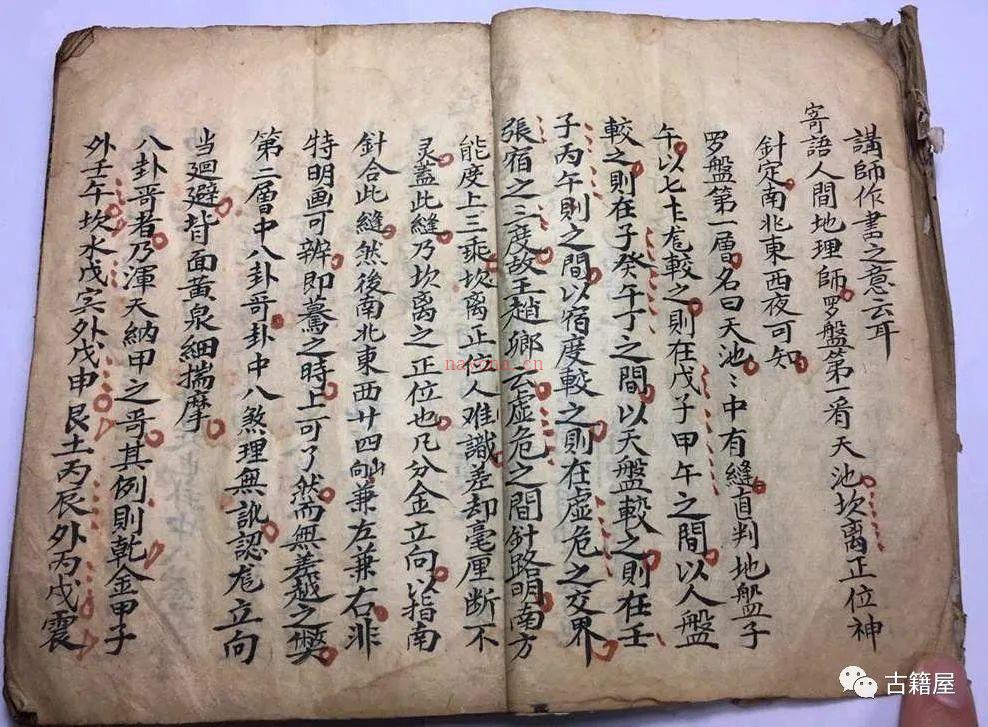 講師作書之意云耳
寄語人間地理師罗盤第一看天池坎离正位神
針定南北東西夜可知
罗盤第一層名曰天池〻中有縫直判地盤子
午以七十龙較之則在戊子甲午之間以人盤
較之則在子癸午丁之間以天盤較之則在壬
子丙午則之間以宿度較之則在虚危之交界
張宿之三度故王趙卿云虚危之間針路明南方
張宿上三乘坎离正位人难識差却毫厘断不
灵蓋此縫乃坎离之正位也凡分金立向以指南
針合此縫然後南北東西廿四山向兼左兼右非
特明画可辨即驀之時上可了然而無差越之弊
第二層中八卦哥卦中八煞理無訛認龙立向
当廻避背面黄泉細揣摩
八卦哥者乃渾天納甲之哥其例則乾金甲子
外壬午坎水戊寅外戊申艮土丙辰外丙戌震
nayona.cn
古籍屋